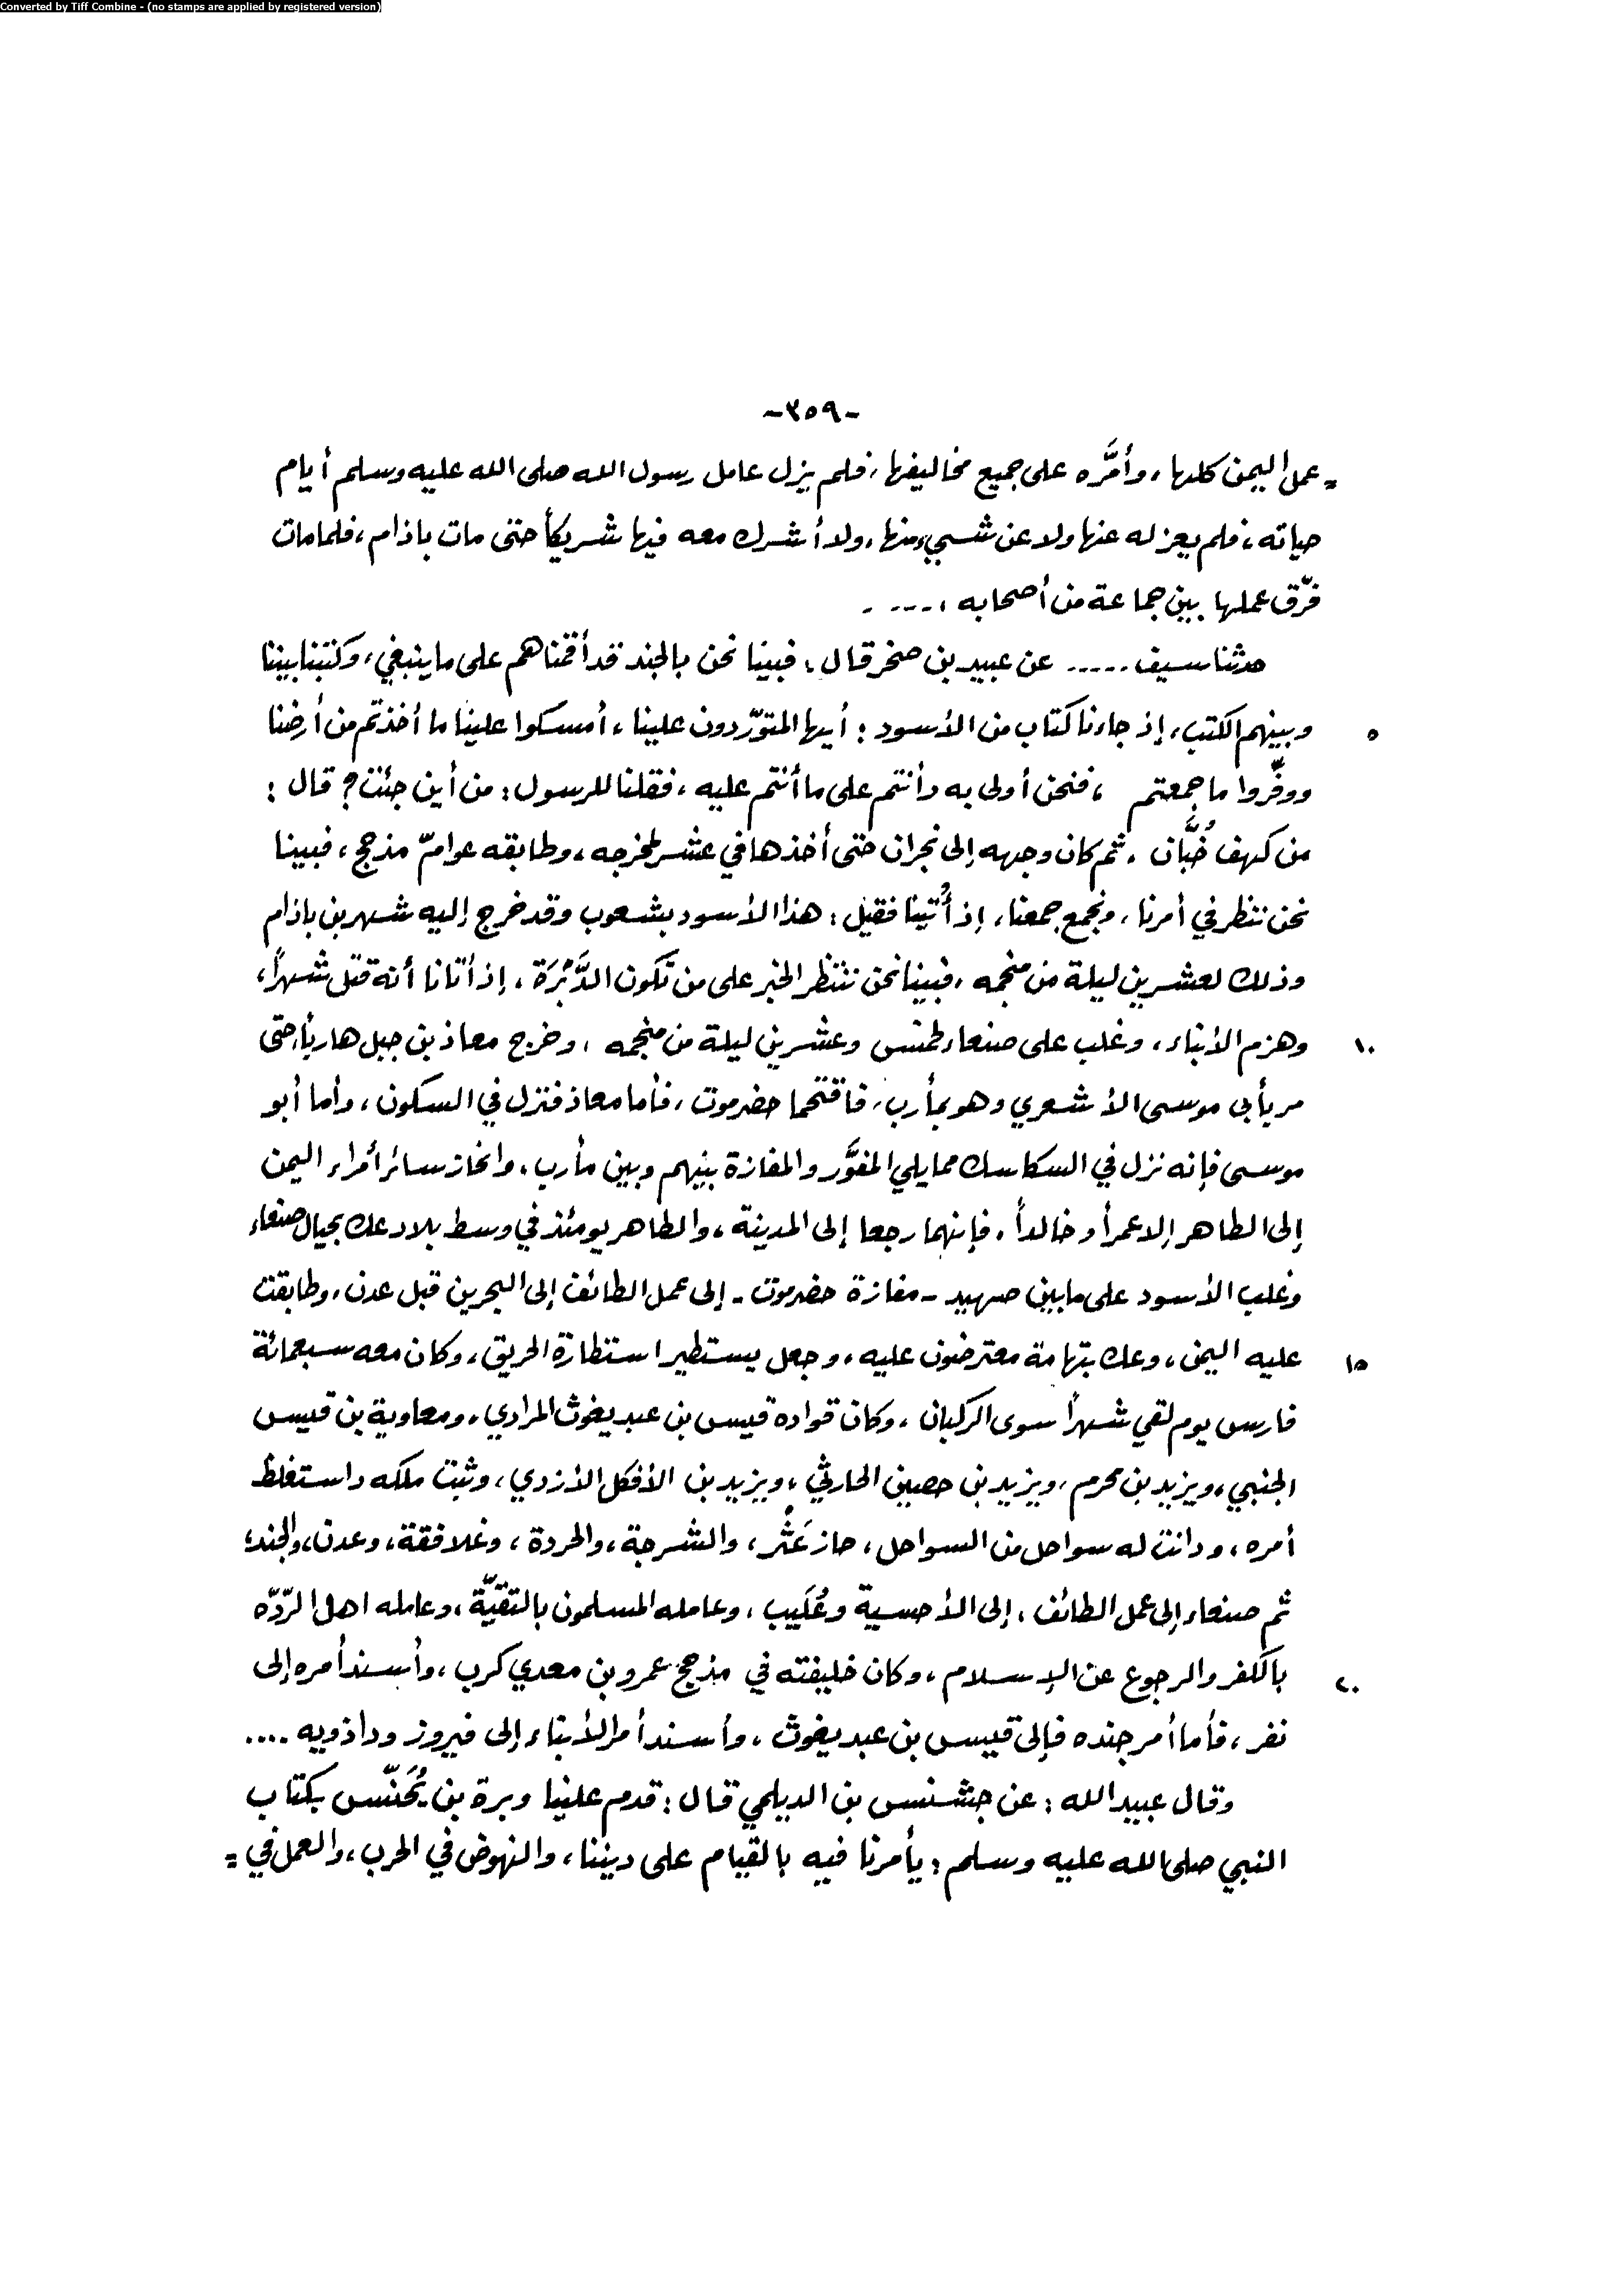 Converted by Tiff Combine - (no stamps are applied by registered version)
-٣٥٩-
= عمل اليمن كلها، وأمَّره على جميع مخاليفها، فلم يزل عامل رسول الله صلى الله عليه وسلم أيام
حياته، فلم يعزله عنها ولا عن شيء منها، ولا أشرك معه فيها شريكاً حتى مات باذام، فلما مات
فرّق عملها بين جماعة من أصحابه ، .... .
حدثنا سيف ..... عن عبيد بن صخر قال: فبينا نحن بالجند قد أقمناهم على ما ينبغي، وكتبنا بيننا
وبينهم الكتب، إذ جاءنا كتاب من الأسود: أيها المتورّدون علينا، أمسكوا علينا ما أخذتم من أرضنا ٥
ووفِّروا ما جمعتم ، فنحن أولى به وأنتم على ما أنتم عليه، فقلنا للرسول: من أين جئت؟ قال:
من كهف خُبَّان ، ثم كان وجهه إلى نجران حتى أخذها في عشر لمخرجه، وطابقه عوامّ مذحج، فبينا
نحن ننظر في أمرنا، ونجمع جمعنا، إذ أُتينا فقيل: هذا الأسود بشعوب وقد خرج إليه شهر بن باذام
وذلك لعشرين ليلة من منجمه، فبينا نحن ننتظر الخبر على من تكون الدَّبْرَة، إذ أتانا أنه قتل شهراً،
وهزم الأبناء، وغلب على صنعاء لخمس وعشرين ليلة من منجمه ، وخرج معاذ بن جبل هارباً، حتى ١٠
مر بأبي موسى الأشعري وهو بمأرب، فاقتحما حضرموت، فأما معاذ فنزل في السكون، وأما أبو
موسى فإنه نزل في السكاسك مما يلي المفوَّر والمفازة بينهم وبين مأرب، وانحاز سائر أمراء اليمن
إلى الطاهر إلا عمراً وخالداً، فإنهما رجعا إلى المدينة، والطاهر يومئذ في وسط بلاد عك بحيال صنعاء
وغلب الأسود على ما بين صهيد - مفازة حضرموت - إلى عمل الطائف إلى البحرين قبل عدن، وطابقت
عليه اليمن، وعك بتهامة معترضون عليه، وجعل يستطير استطارة الحريق، وكان معه سبعمائة ١٥
فارس يوم لقي شهراً سوى الركبان، وكان قواده قيس بن عبد يغوث المرادي، ومعاوية بن قيس
الجنبي، ويزيد بن محرم، ويزيد بن حصين الحارثي، ويزيد بن الأفكل الأزدي، وثبت ملكه واستغلظ
أمره، ودانت له سواحل من السواحل، حاز عَثْر، والشرجة، والحردة، وغلافقة، وعدن، والجند؛
ثم صنعاء إلى عمل الطائف، إلى الأحسية وعُلَيب، وعامله المسلمون بالتقيّة، وعامله اهل الرّدّه
بالكفر والرجوع عن الإسلام، وكان خليفته في مذحج عمرو بن معدي كرب، وأسند أمره إلى ٢٠
نفر، فأما أمر جنده فإلى قيس بن عبد يغوث، وأسند أمر الأبناء إلى فيروز وداذويه ....
وقال عبيد الله: عن جشنس بن الديلمي قال: قدم علينا وبرة بن يُحَنّس بكتاب
النبي صلى الله عليه وسلم: يأمرنا فيه بالقيام على ديننا، والنهوض في الحرب، والعمل في =